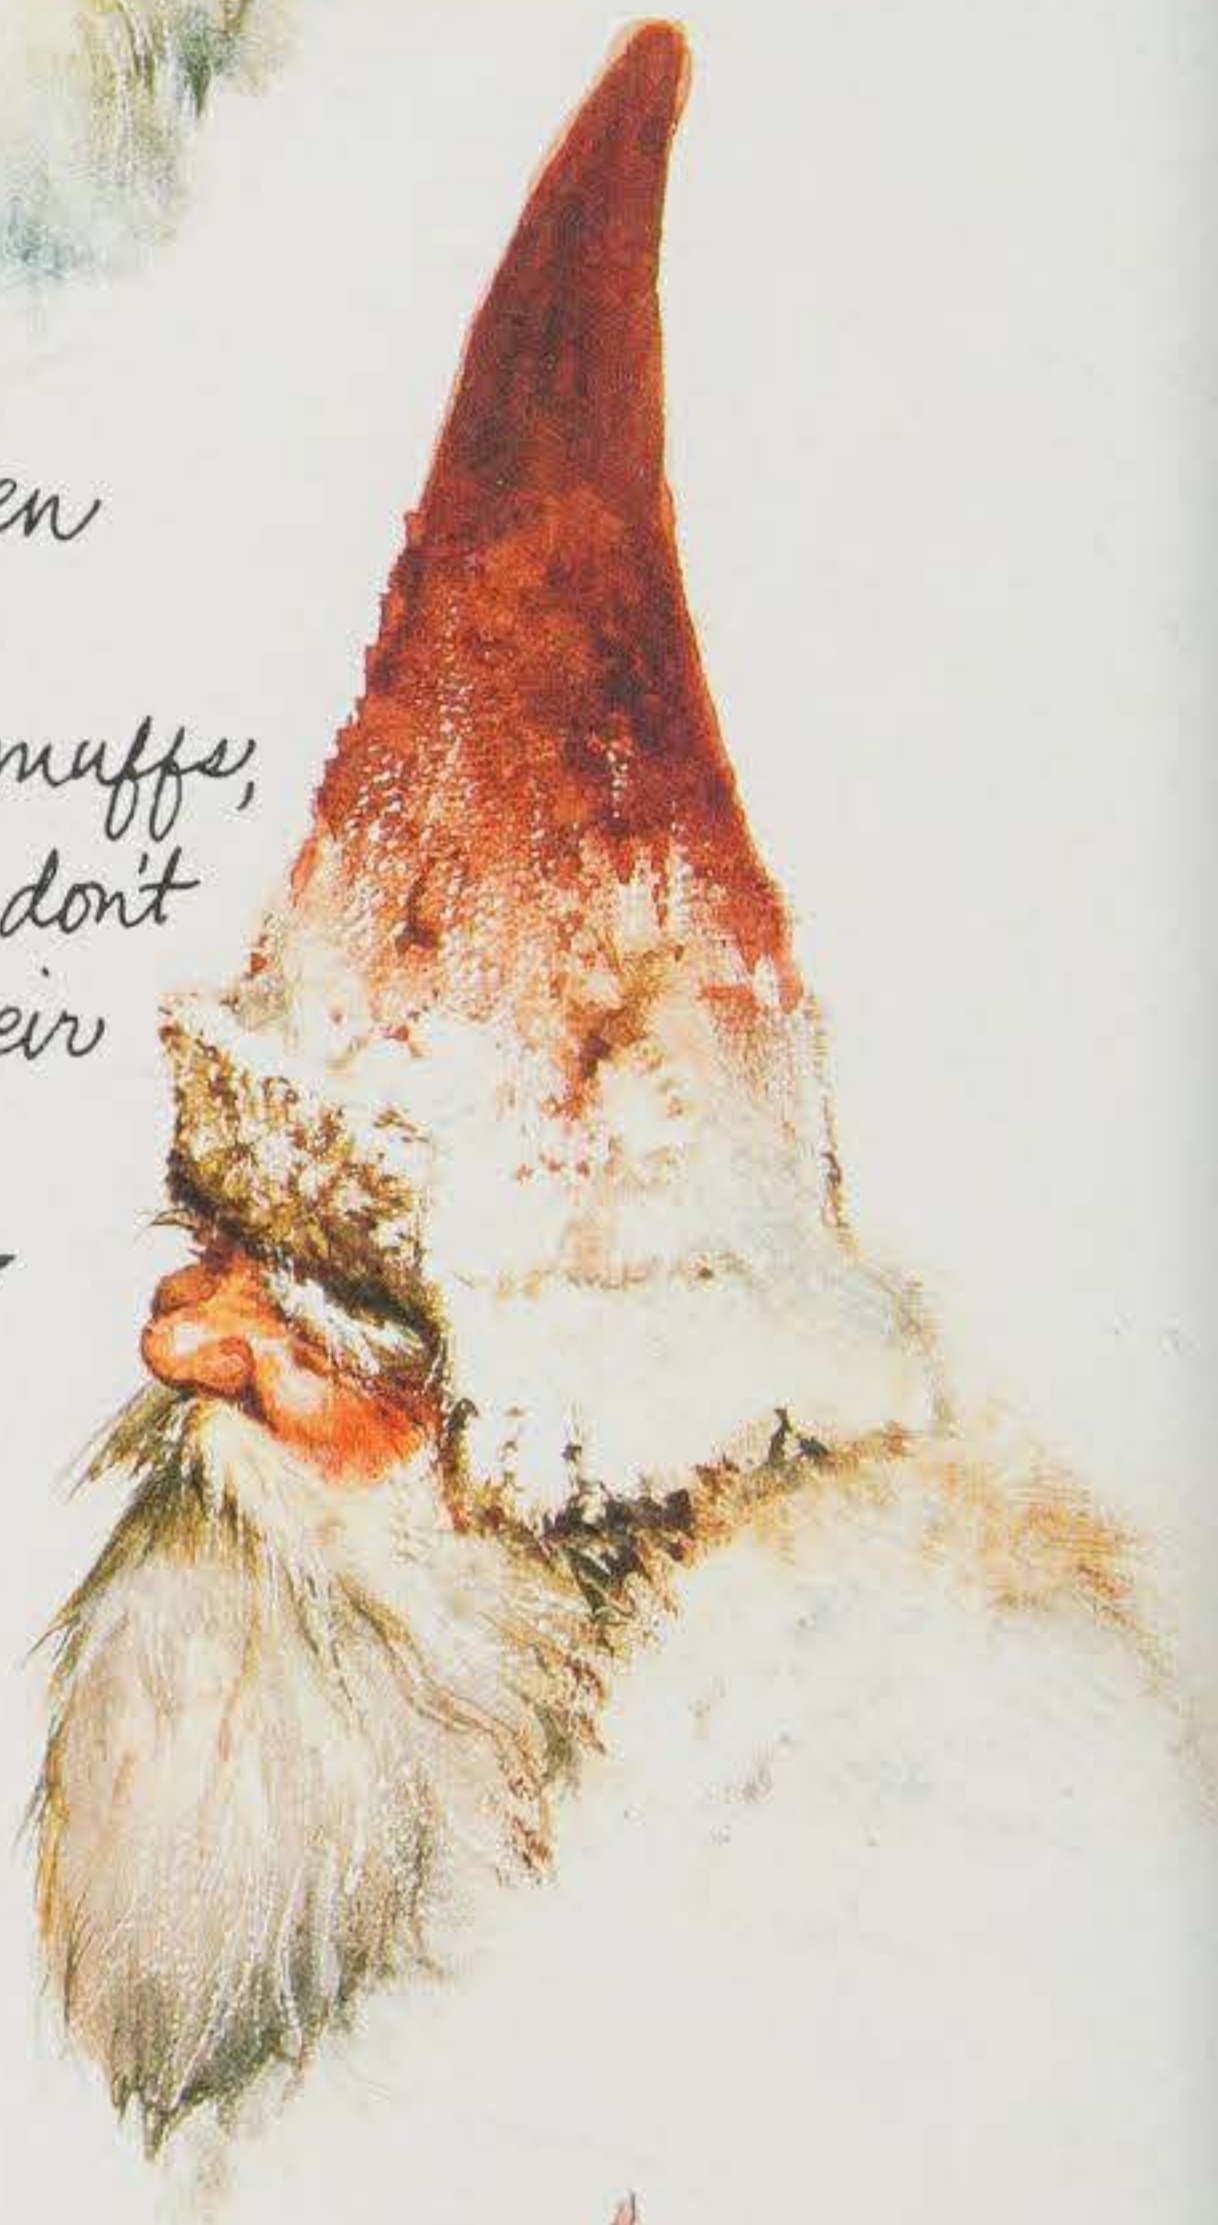 en
muffs,
don't
eir